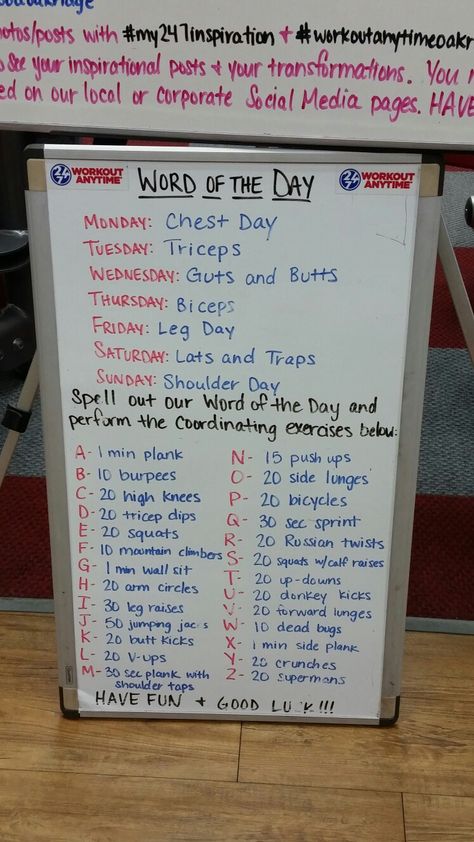 otos/posts with #my247inspiration + #workoutanytimeoakr
see your inspirational posts + your transformations. You
ed on our local or corporate Social Media pages. HAVE
24 7 WORKOUT ANYTIME WORD OF THE DAY 24 7 WORKOUT ANYTIME
MONDAY: Chest Day
TUESDAY: Triceps
WEDNESDAY: Guts and Butts
THURSDAY: Biceps
FRIDAY: Leg Day
SATURDAY: Lats and Traps
SUNDAY: Shoulder Day
Spell out our Word of the Day and
perform the Coordinating exercises below:
A- 1 min plank
B- 10 burpees
C- 20 high knees
D- 20 tricep dips
E- 20 squats
F- 10 mountain climbers
G- 1 min wall sit
H- 20 arm circles
I- 30 leg raises
J- 50 jumping jacks
K- 20 butt kicks
L- 20 v-ups
M- 30 sec plank with
shoulder taps
N- 15 push ups
O- 20 side lunges
P- 20 bicycles
Q- 30 sec sprint
R- 20 Russian twists
S- 20 squats w/calf raises
T- 20 up-downs
U- 20 donkey kicks
V- 20 forward lunges
W- 10 dead bugs
X- 1 min side plank
Y- 20 crunches
Z- 20 supermans
HAVE FUN + GOOD LUCK!!!